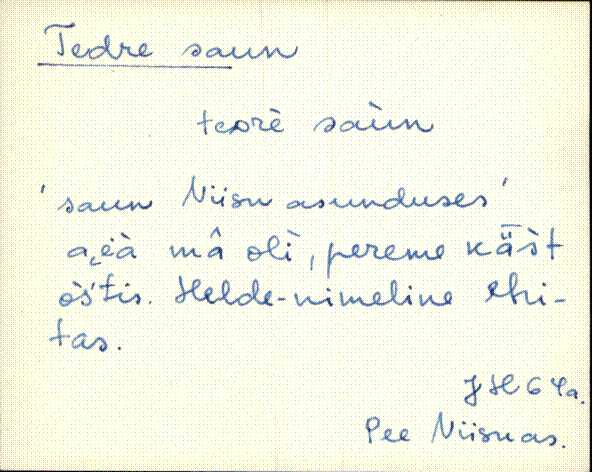 Tedre saun
teorè saùn
'saun Niisu asunduses'
mâ olì, pereme käšt
òš́tis. Helde-nimeline ehi-
tas.
JH 64a.
Pee Niisuas.